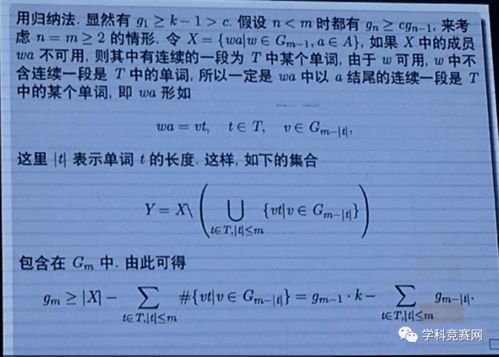 用归纳法. 显然有 g₁ ≥ k − 1 > c. 假设 n < m 时都有 gₙ ≥ cgₙ₋₁, 来考
虑 n = m ≥ 2 的情形. 令 X = {wa|w ∈ Gₘ₋₁, a ∈ A}, 如果 X 中的成员
wa 不可用, 则其中有连续的一段为 T 中某个单词, 由于 w 可用, w 中不
含连续一段是 T 中的单词, 所以一定是 wa 中以 a 结尾的连续一段是 T
中的某个单词, 即 wa 形如
wa = vt, t ∈ T, v ∈ G_{m−|t|},
这里 |t| 表示单词 t 的长度. 这样, 如下的集合
Y = X\ ( ⋃_{t∈T,|t|≤m} {vt|v ∈ G_{m−|t|}} )
包含在 Gₘ 中. 由此可得
gₘ ≥ |X| − ∑_{t∈T,|t|≤m} #{vt|v ∈ G_{m−|t|}} = gₘ₋₁ · k − ∑_{t∈T,|t|≤m} g_{m−|t|}.
学科竞赛网